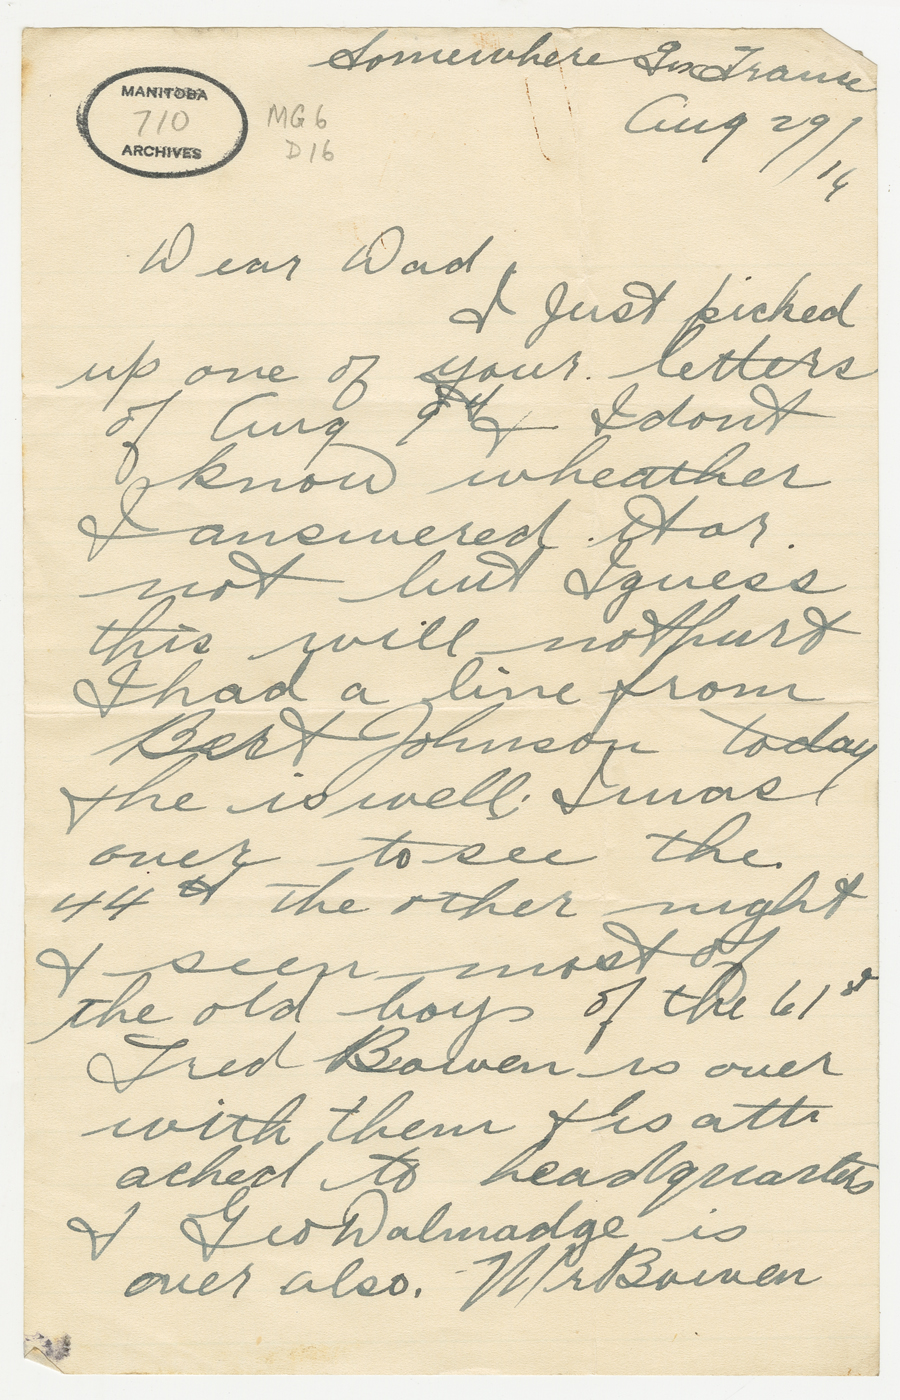 Somewhere In France
Aug 29/16
MANITOBA
710
ARCHIVES
MG6
D16
Dear Dad,
I just picked
up one of your letters
of Aug 9th & I dont
know wheather
I answered it or
not but I guess
this will not hurt
I had a line from
Bert Johnson today
& he is well. I was
over to see the
44th the other night
& seen most of
the old boys of the 61st
Fred Bowen is over
with them & is atta
ached to headquarters
& Geo Dalmadge is
over also. Mr Bowen